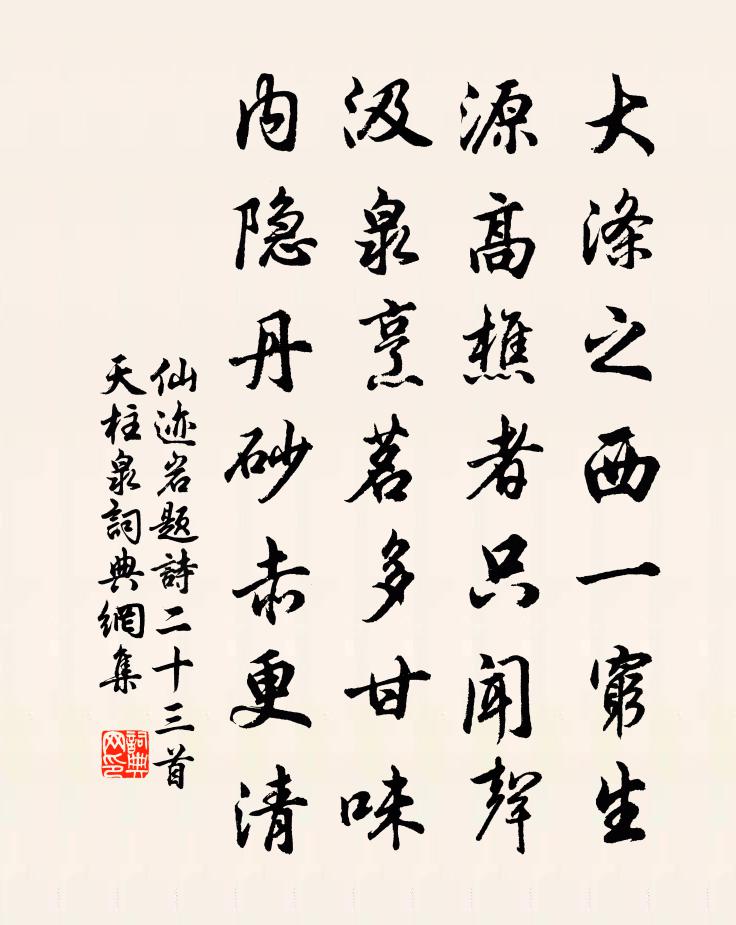 大滌之西一窮生
源高樵者只聞聲
汲泉烹茗多甘味
内隐丹砂赤更清
仙迹岩题詩二十三首
天柱泉詞典網集
詞典
网印